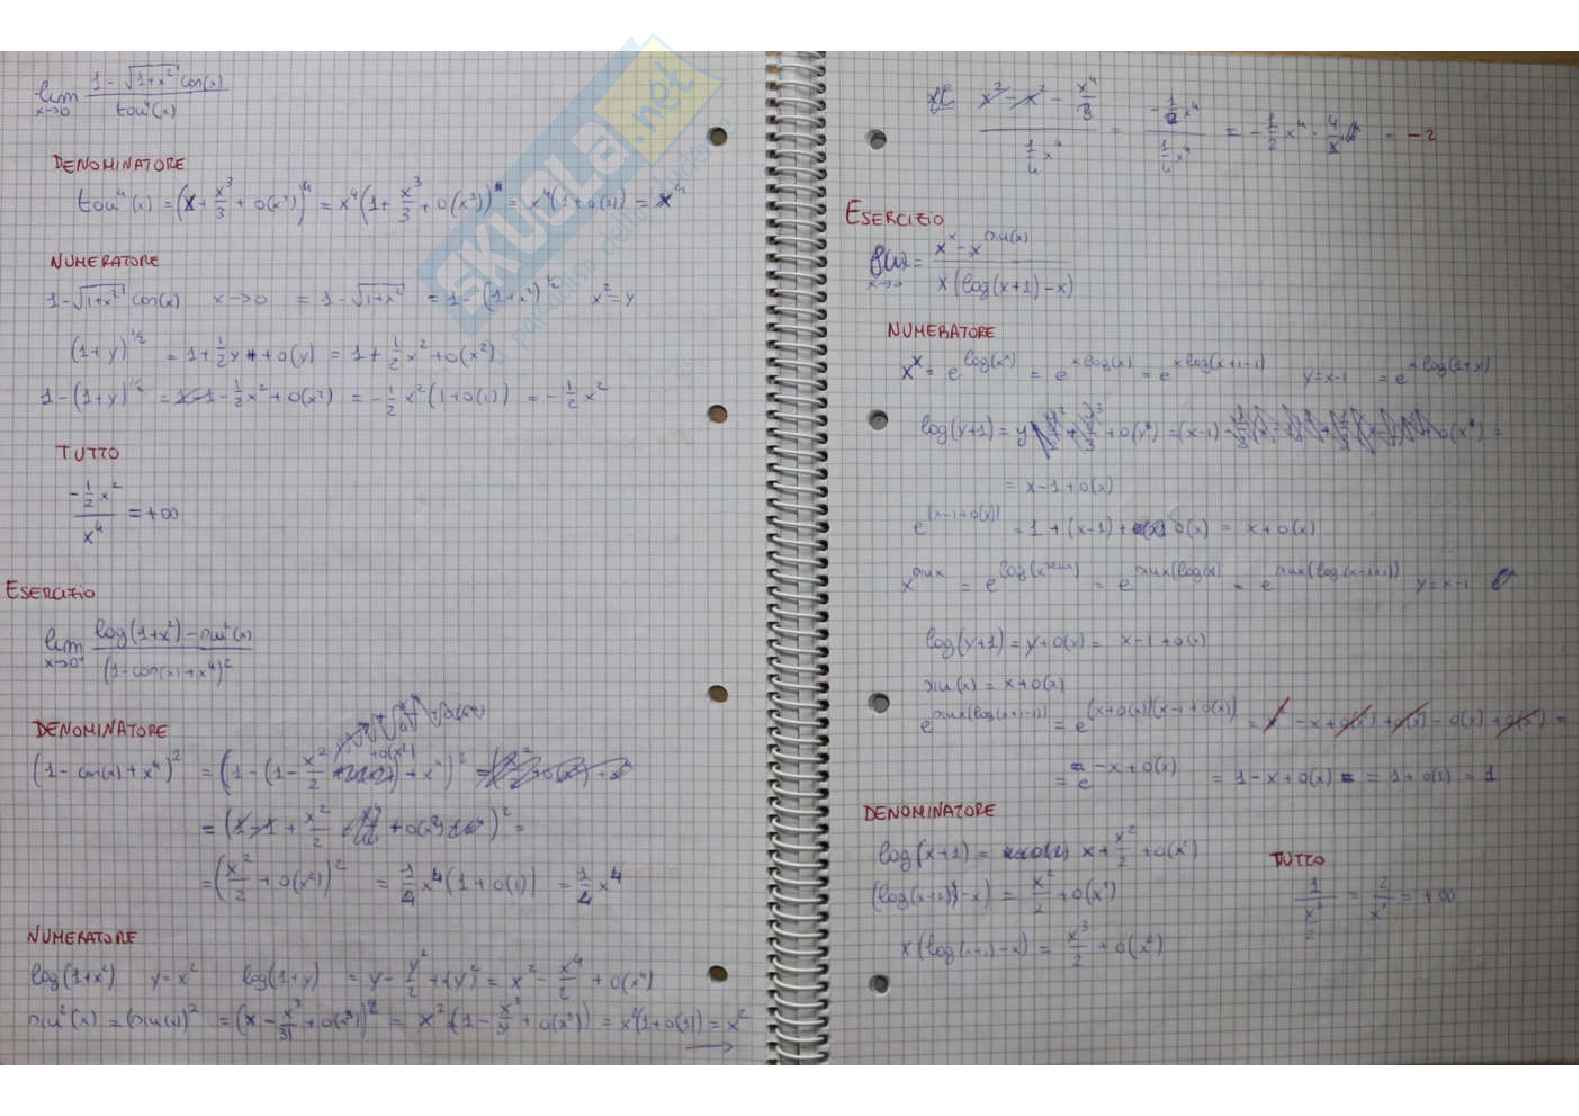 lim x→0 (1 - √(1+x²) cos(x)) / tan⁴(x)
DENOMINATORE
tan⁴(x) = (x + x³/3 + o(x³))⁴ = x⁴(1 + x³/3 + o(x³))⁴ = x⁴(1+o(1)) = x⁴
NUMERATORE
1-√(1+x²) cos(x) x→0 = 1-√(1+x²) = 1-(1+x²)^½ x²=y
(1+y)^½ = 1+½y + o(y) = 1+½x²+o(x²)
1-(1+y)^½ = 1-1-½x²+o(x²) = -½x²(1+o(1)) = -½x²
TUTTO
(-½x²)/x⁴ = +∞
ESERCIZIO
lim x→0⁺ (log(1+x²) - sin²(x)) / (1-cos(x)+x⁴)²
DENOMINATORE
(1-cos(x)+x⁴)² = (1-(1-x²/2 + o(x²))+x⁴)²
= (1-1+x²/2 + o(x²))² =
= (x²/2 + o(x²))² = ¼x⁴(1+o(1)) = ¼x⁴
NUMERATORE
log(1+x²) y=x² log(1+y) = y - y²/2 + (y²) = x² - x⁴/2 + o(x⁴)
sin²(x) = (sin(x))² = (x - x³/3! + o(x³))² = x²(1 - x³/3! + o(x³)) = x²(1+o(1)) = x²
(x² - x² - x⁴/2)/(¼x⁴) = (-½x⁴)/(¼x⁴) = -½x⁴ · 4/x⁴ = -2
ESERCIZIO
f(x) x→0 = (x^x - x^sin(x)) / x(log(x+1)-x)
NUMERATORE
x^x = e^log(x^x) = e^(x log(x)) = e^(x log(x+1-1)) y=x-1 = e^(x log(1+x))
log(y+1) = y + o(x²) = (x-1) o(x²) =
= x-1+o(x)
e^(x-1+o(x)) = 1+(x-1)+o(x) = x+o(x)
x^sinx = e^log(x^sinx) = e^(sinx(log(x))) = e^(sinx(log(x-1+1))) y=x-1
log(y+1) = y+o(x) = x-1+o(x)
sin(x) = x+o(x)
e^(sinx(log(x+1-1))) = e^((x+o(x))(x-1+o(x))) = -x+o(x) + o(x) - o(x) + o(x) =
= e^(-x+o(x)) = 1-x+o(x) = 1+o(1) = 1
DENOMINATORE
log(x+1) = x+x²/2+o(x²)
(log(x+1)-x) = x²/2+o(x²)
x(log(x+1)-x) = x³/2+o(x³)
TUTTO
1/(x³/2) = 2/x³ = +∞
SKUOLA.net